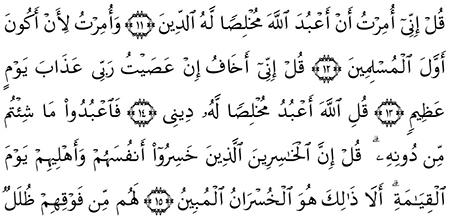 قُلْ إِنِّىٓ أُمِرْتُ أَنْ أَعْبُدَ ٱللَّهَ مُخْلِصًا لَّهُ ٱلدِّينَ ﴿١١﴾ وَأُمِرْتُ لِأَنْ أَكُونَ
أَوَّلَ ٱلْمُسْلِمِينَ ﴿١٢﴾ قُلْ إِنِّىٓ أَخَافُ إِنْ عَصَيْتُ رَبِّى عَذَابَ يَوْمٍ
عَظِيمٍ ﴿١٣﴾ قُلِ ٱللَّهَ أَعْبُدُ مُخْلِصًا لَّهُۥ دِينِى ﴿١٤﴾ فَٱعْبُدُوا۟ مَا شِئْتُم
مِّن دُونِهِۦ ۗ قُلْ إِنَّ ٱلْخَـٰسِرِينَ ٱلَّذِينَ خَسِرُوٓا۟ أَنفُسَهُمْ وَأَهْلِيهِمْ يَوْمَ
ٱلْقِيَـٰمَةِ ۗ أَلَا ذَٰلِكَ هُوَ ٱلْخُسْرَانُ ٱلْمُبِينُ ﴿١٥﴾ لَهُم مِّن فَوْقِهِمْ ظُلَلٌ